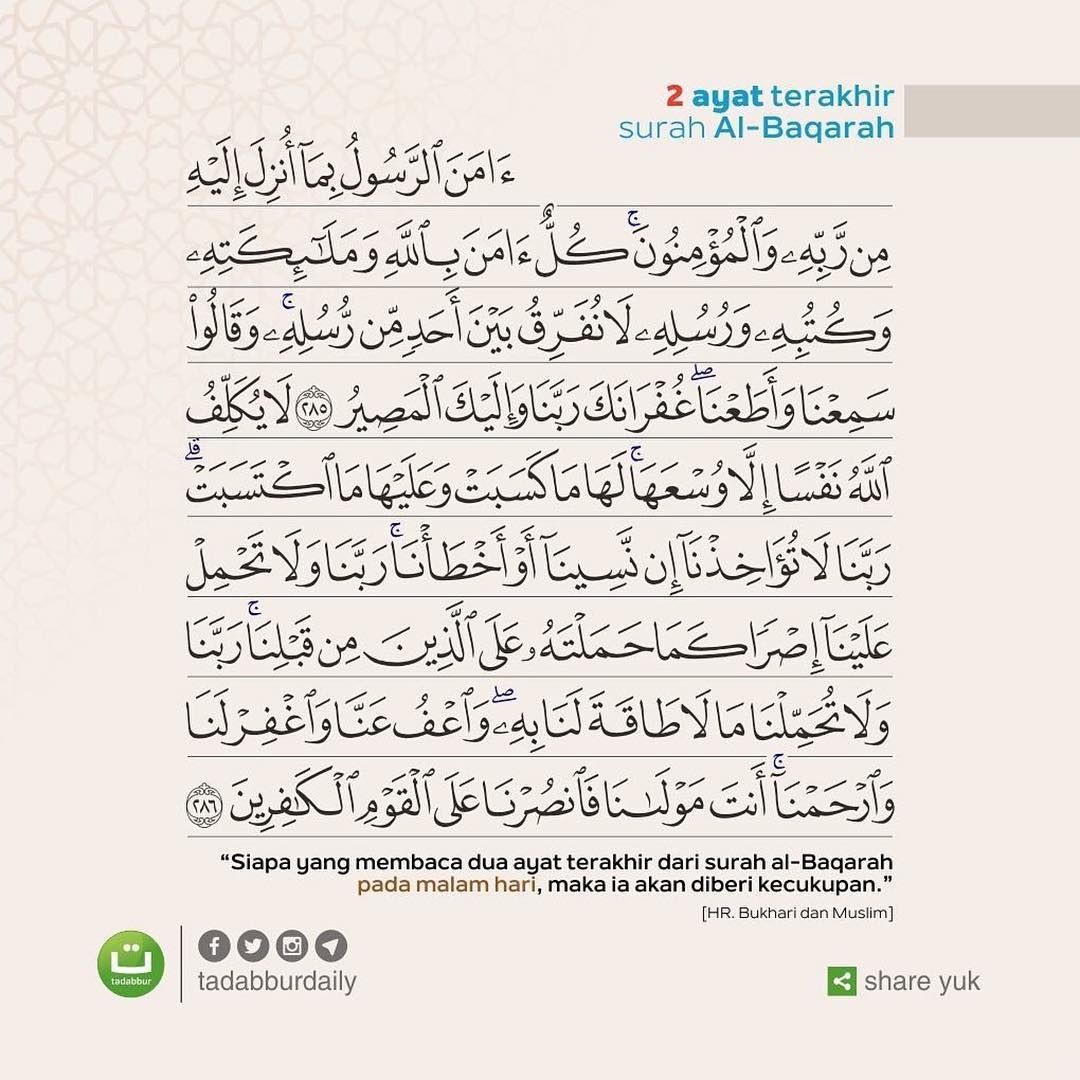 2 ayat terakhir
surah Al-Baqarah
ءَامَنَ ٱلرَّسُولُ بِمَآ أُنزِلَ إِلَيْهِ
مِن رَّبِّهِۦ وَٱلْمُؤْمِنُونَ ۚ كُلٌّ ءَامَنَ بِٱللَّهِ وَمَلَـٰٓئِكَتِهِۦ
وَكُتُبِهِۦ وَرُسُلِهِۦ لَا نُفَرِّقُ بَيْنَ أَحَدٍ مِّن رُّسُلِهِۦ ۚ وَقَالُوا۟
سَمِعْنَا وَأَطَعْنَا ۖ غُفْرَانَكَ رَبَّنَا وَإِلَيْكَ ٱلْمَصِيرُ ٢٨٥ لَا يُكَلِّفُ
ٱللَّهُ نَفْسًا إِلَّا وُسْعَهَا ۚ لَهَا مَا كَسَبَتْ وَعَلَيْهَا مَا ٱكْتَسَبَتْ ۗ
رَبَّنَا لَا تُؤَاخِذْنَآ إِن نَّسِينَآ أَوْ أَخْطَأْنَا ۚ رَبَّنَا وَلَا تَحْمِلْ
عَلَيْنَآ إِصْرًا كَمَا حَمَلْتَهُۥ عَلَى ٱلَّذِينَ مِن قَبْلِنَا ۚ رَبَّنَا
وَلَا تُحَمِّلْنَا مَا لَا طَاقَةَ لَنَا بِهِۦ ۖ وَٱعْفُ عَنَّا وَٱغْفِرْ لَنَا
وَٱرْحَمْنَآ ۚ أَنتَ مَوْلَىٰنَا فَٱنصُرْنَا عَلَى ٱلْقَوْمِ ٱلْكَـٰفِرِينَ ٢٨٦
“Siapa yang membaca dua ayat terakhir dari surah al-Baqarah
pada malam hari, maka ia akan diberi kecukupan.”
[HR. Bukhari dan Muslim]
ت
tadabbur
tadabburdaily
share yuk